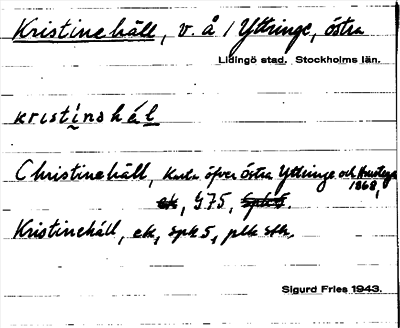 Kristinehäll, v. å / Yttringe, östra
Lidingö stad. Stockholms län.
kristinshél
Christinehäll, Karta öfver östra Yttringe och
1868,
ek, G75, spk 5.
Kristinehäll, ek, spk 5, plk sthm
Sigurd Fries 1943.